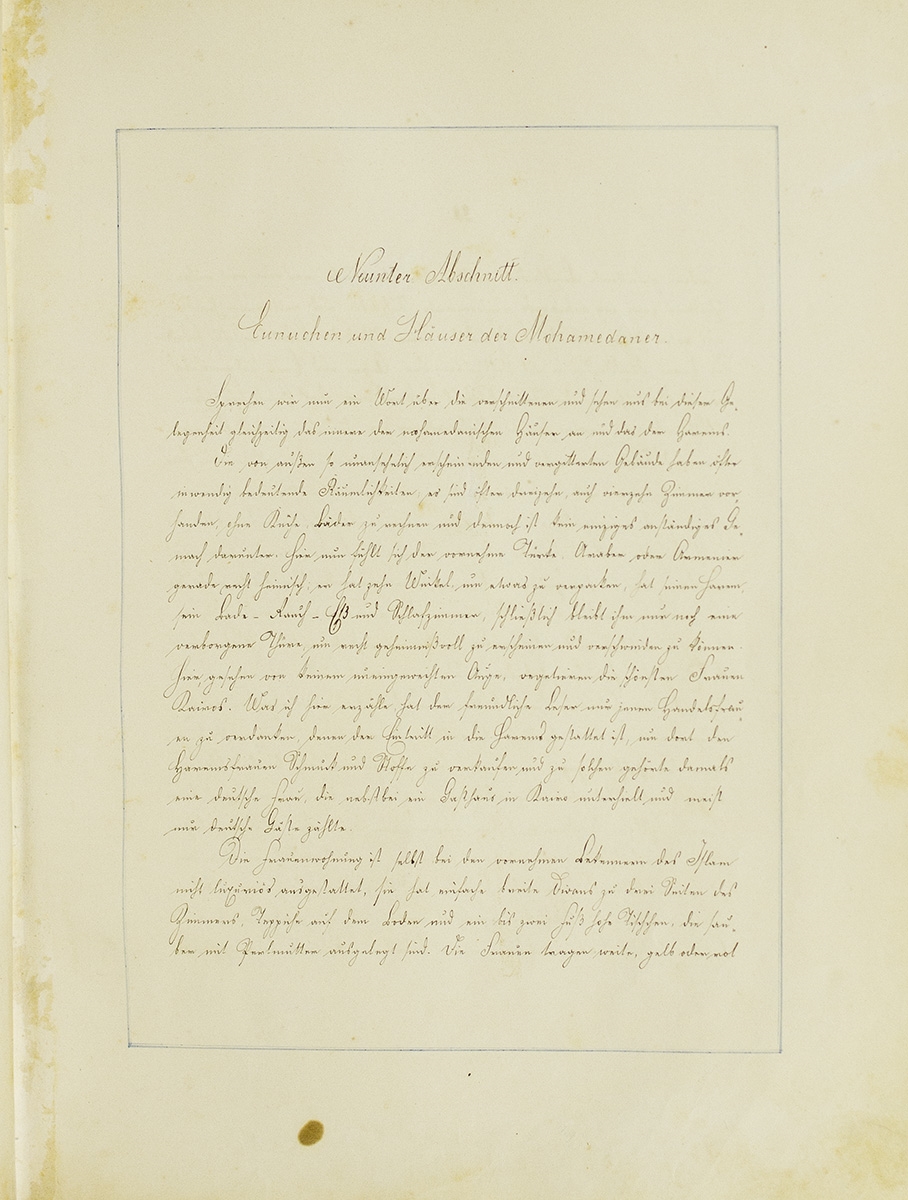 Neunter Abschnitt.
Eunuchen und Häuser der Mohamedaner.
Sprechen wir nun ein Wort über die verschnittenen und sehen uns bei dieser Ge-
legenheit gleichzeitig das innere der mohamedanischen Häuser an und das der Harems.
Die von außen so unansehnlich erscheinenden und vergitterten Gebäude haben öfter
inwendig bedeutende Räumlichkeiten; es sind öfter dreizehn, auch vierzehn Zimmer vor-
handen, ohne Küche, Bäder zu rechnen und dennoch ist kein einziges anständiges Ge-
mach darunter. Hier nun fühlt sich der vornehme Türke, Araber oder Armenier
gerade recht heimisch; er hat zehn Winkel, um etwas zu verpacken, hat seinen Harem,
sein Bade- Rauch- Eß- und Schlafzimmer, schließlich bleibt ihm nur noch eine
verborgene Thüre, um recht geheimnißvoll zu erscheinen und verschwinden zu können.
Hier, gesehen von keinem uneingeweihten Auge, vegetieren die schönsten Frauen
Kairos. Was ich hier erzähle, hat der freundliche Leser nur jenen Handelsfrau-
en zu verdanken, denen der Eintritt in die Harems gestattet ist, um dort den
Haremsfrauen Schmuck und Stoffe zu verkaufen und zu solchen gehörte damals
eine deutsche Frau, die nebstbei ein Gasthaus in Kairo unterhielt und meist
nur deutsche Gäste zählte.
Die Frauenwohnung ist selbst bei den vornehmen Bekennern des Islam
nicht luxuriös ausgestattet, sie hat einfache breite Divans zu drei Seiten des
Zimmers, Teppiche auf dem Boden und ein bis zwei Fuß hohe Tischchen, die sau-
ber mit Perlmutter ausgelegt sind. Die Frauen tragen weite, gelb oder rot